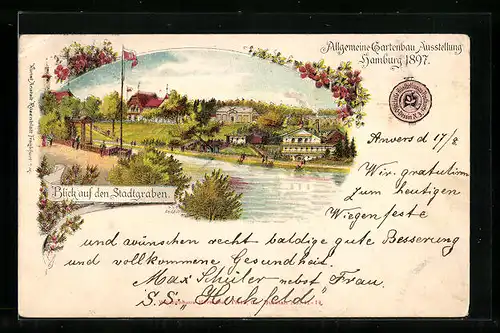 Allgemeine Gartenbau Ausstellung
Hamburg 1897.
Anvers d 17/2
Wir gratuliren
zum heutigen
Wiegenfeste
Blick auf den Stadtgraben.
und wünschen recht baldige gute Besserung
und vollkommene Gesundheit.
Max Schüler nebst Frau
S.S. "Hochfeld"